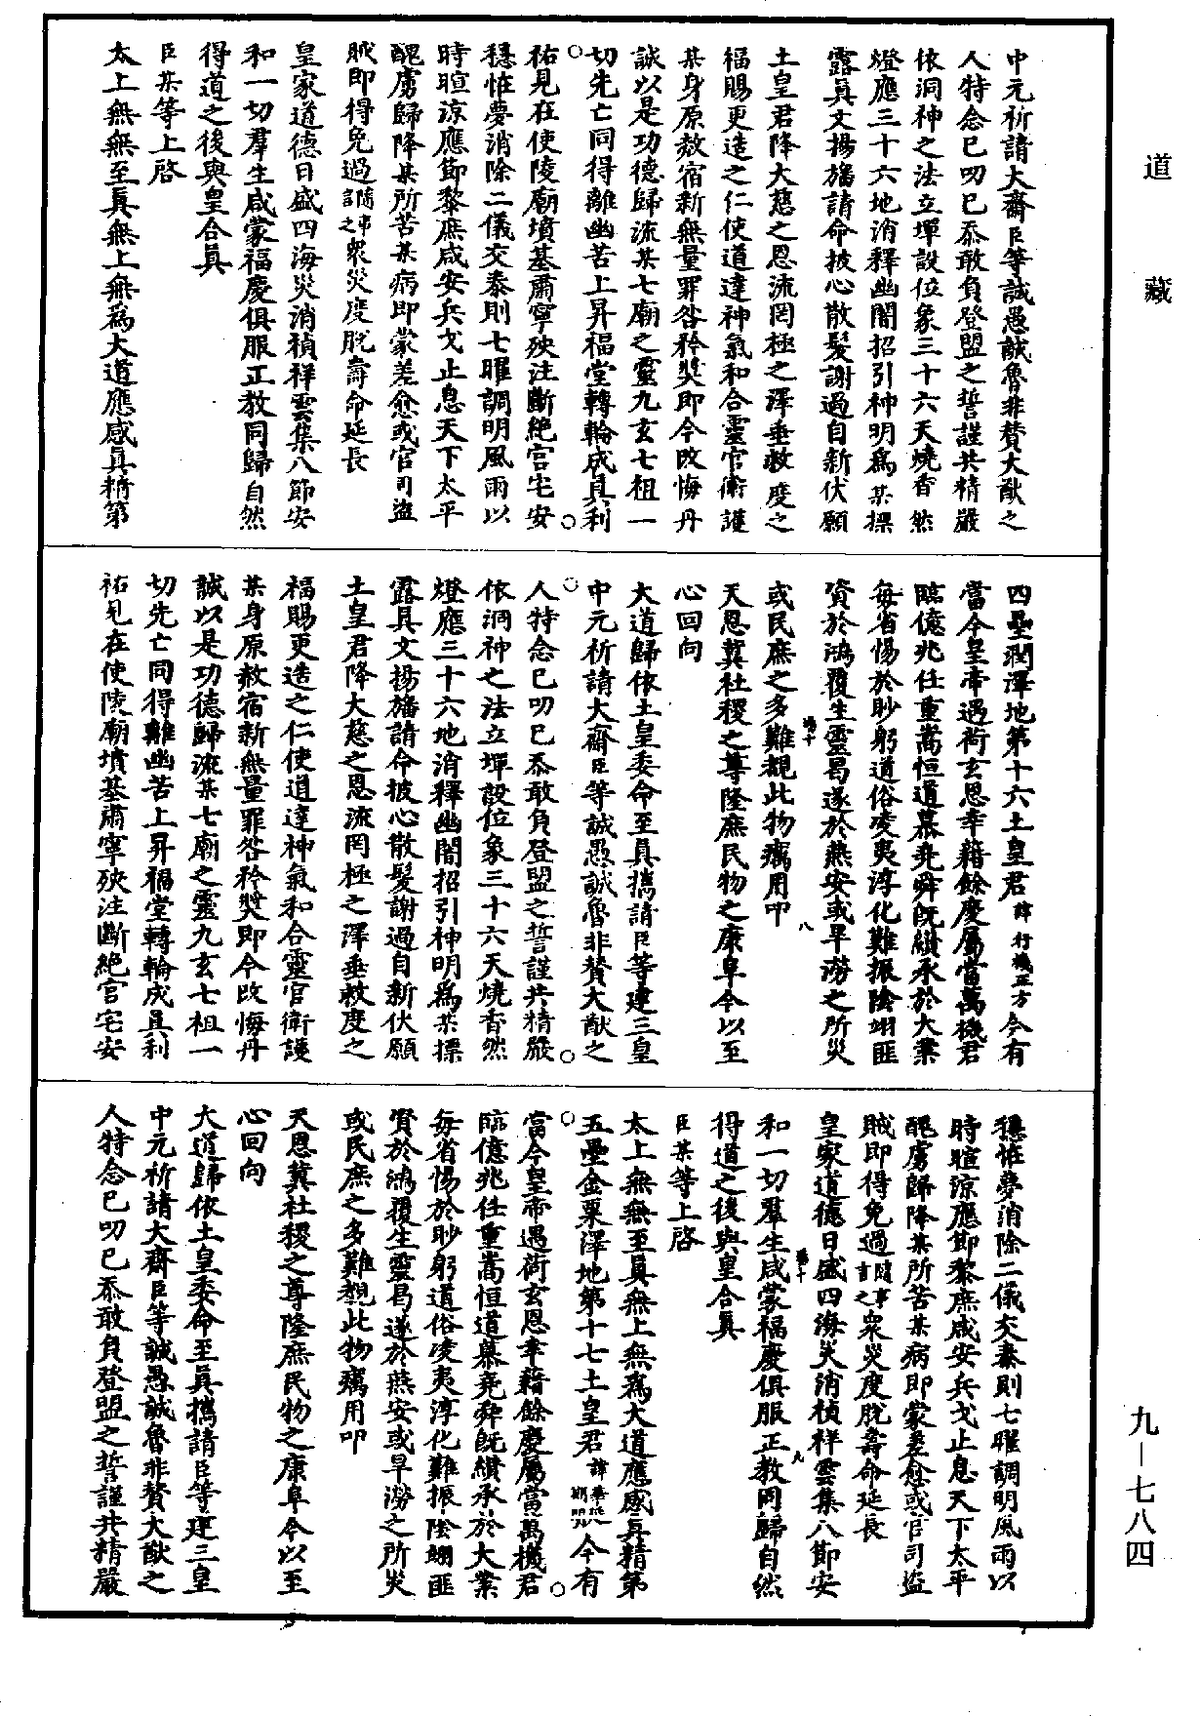 道藏
中元祈請大齋臣等誠愚誠魯非贊大猷之
人特念已叨已忝敢負登盟之誓謹共精嚴
依洞神之法立墠設位象三十六天燒香然
燈應三十六地消釋幽闇招引神明爲某摽
露眞文揚旛請命披心散髮謝過自新伏願
土皇君降大慈之恩流罔極之澤垂救度之
福賜更造之仁使道達神氣和合靈官衛護
某身原赦宿新無量罪咎矜獎即今改悔丹
誠以是功德歸流某七廟之靈九玄七祖一
切先亡同得離幽苦上昇福堂轉輪成眞利
祐見在使陵廟墳基肅寧殃注斷絕宮宅安
穩恠夢消除二儀交泰則七曜調明風雨以
時暄涼應節黎庶咸安兵戈止息天下太平
醜虜歸降某所苦某病即蒙差愈或官司盜
賊即得免過隨事言之衆災度脫壽命延長
皇家道德日盛四海災消禎祥雲集八節安
和一切羣生咸蒙福慶俱服正教同歸自然
得道之後與皇合眞
臣某等上啓
太上無無至眞無上無爲大道應感眞精第
四壘潤澤地第十六土皇君諱行機正方今有
當今皇帝遇荷玄恩幸藉餘慶屬當萬機君
臨億兆任重嵩恒道慕堯舜旣纘承於大業
每省惕於眇躬道俗凌夷淳化難振陰翊匪
資於鴻覆生靈曷遂於燕安或旱澇之所災
或民庶之多難覩此物癘用叩
天恩冀社稷之尊隆庶民物之康阜今以至
心回向
大道歸依土皇委命至眞攜請臣等建三皇
中元祈請大齋臣等誠愚誠魯非贊大猷之
人特念已叨已忝敢負登盟之誓謹共精嚴
依洞神之法立墠設位象三十六天燒香然
燈應三十六地消釋幽闇招引神明爲某摽
露眞文揚旛請命披心散髮謝過自新伏願
土皇君降大慈之恩流罔極之澤垂救度之
福賜更造之仁使道達神氣和合靈官衛護
某身原赦宿新無量罪咎矜獎即今改悔丹
誠以是功德歸流某七廟之靈九玄七祖一
切先亡同得離幽苦上昇福堂轉輪成眞利
祐見在使陵廟墳基肅寧殃注斷絕宮宅安
穩恠夢消除二儀交泰則七曜調明風雨以
時暄涼應節黎庶咸安兵戈止息天下太平
醜虜歸降某所苦某病即蒙差愈或官司盜
賊即得免過隨事言之衆災度脫壽命延長
皇家道德日盛四海災消禎祥雲集八節安
和一切羣生咸蒙福慶俱服正教同歸自然
得道之後與皇合眞
臣某等上啓
太上無無至眞無上無爲大道應感眞精第
五壘金粟澤地第十七土皇君諱今有
當今皇帝遇荷玄恩幸藉餘慶屬當萬機君
臨億兆任重嵩恒道慕堯舜旣纘承於大業
每省惕於眇躬道俗凌夷淳化難振陰翊匪
資於鴻覆生靈曷遂於燕安或旱澇之所災
或民庶之多難覩此物癘用叩
天恩冀社稷之尊隆庶民物之康阜今以至
心回向
大道歸依土皇委命至眞攜請臣等建三皇
中元祈請大齋臣等誠愚誠魯非贊大猷之
人特念已叨已忝敢負登盟之誓謹共精嚴
九—七八四